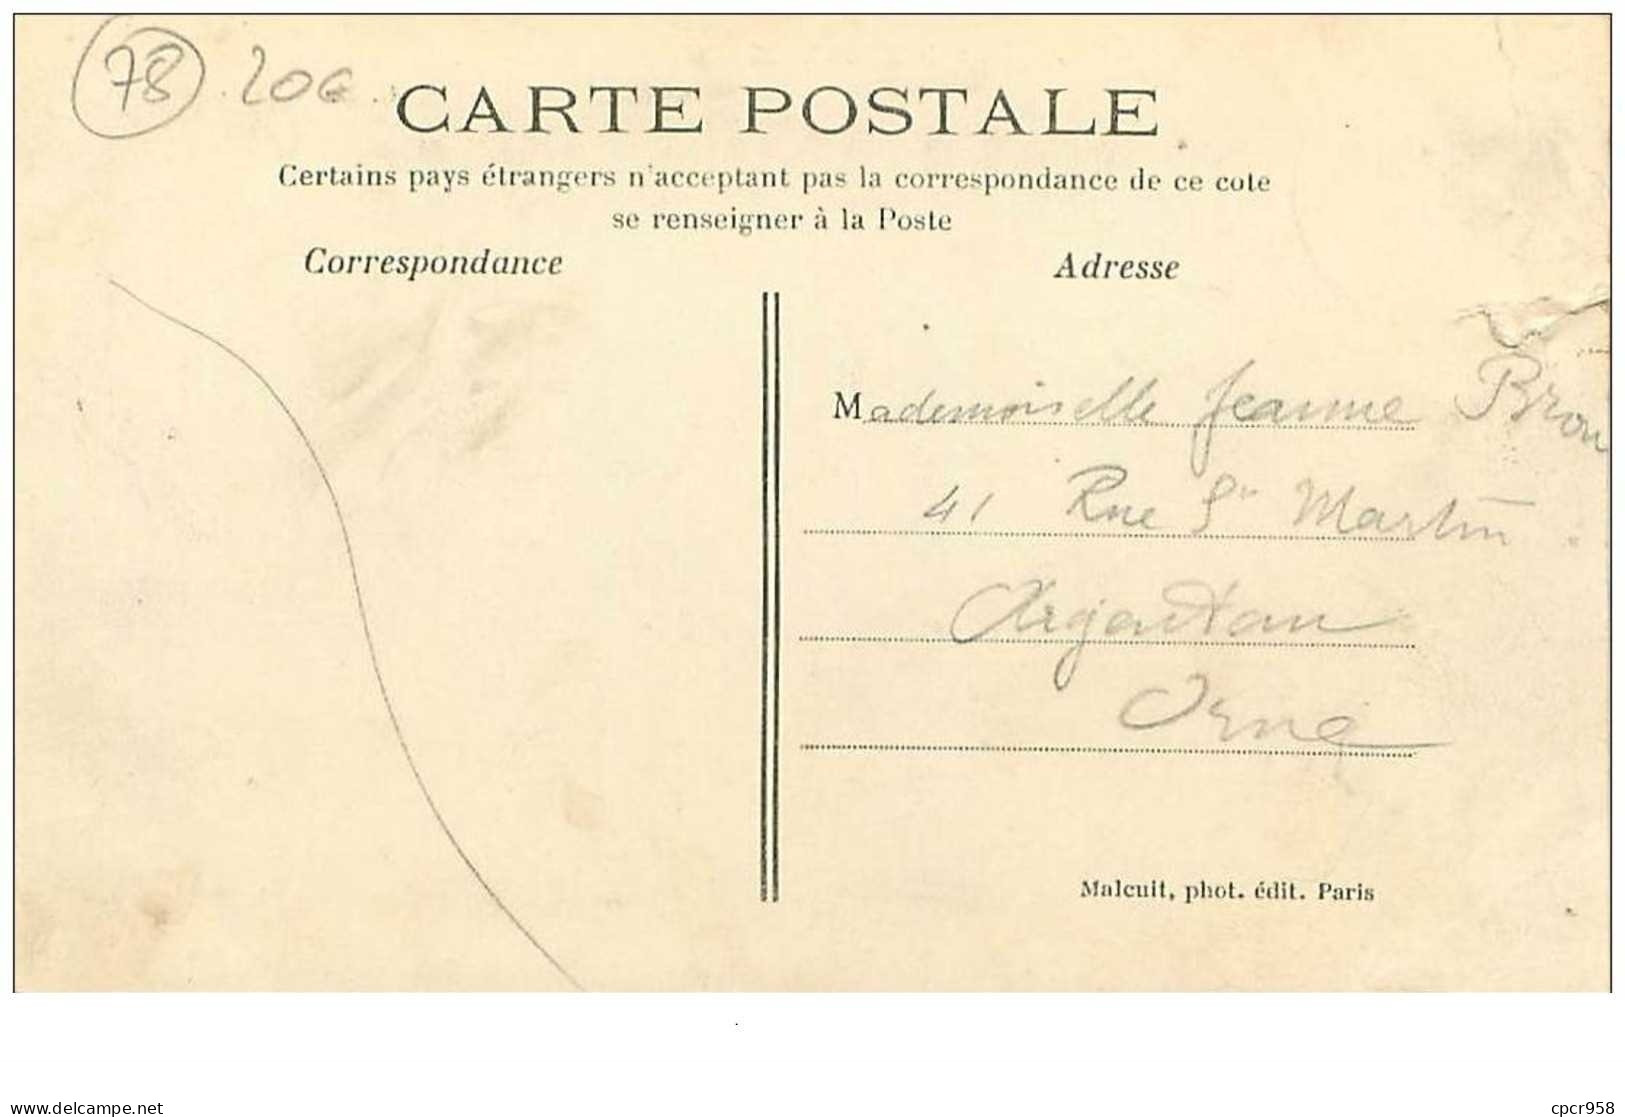 78 20€
CARTE POSTALE
Certains pays étrangers n'acceptant pas la correspondance de ce cote
se renseigner à la Poste
Correspondance
Adresse
Mademoiselle Jeanne Brou
41 Rue St Martin
Argentan
Orne
Malcuit, phot. édit. Paris
www.delcampe.net
cpcr958